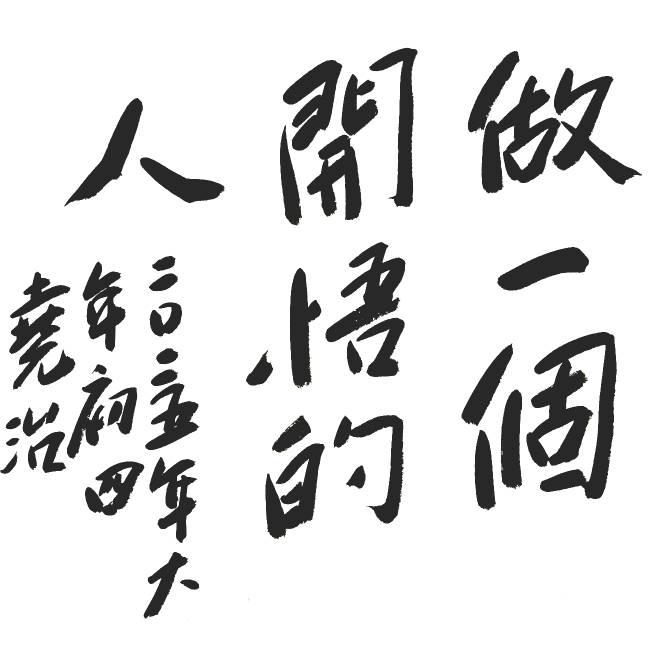 做一個
開悟的
人
二〇二五年大
年初四
堯治